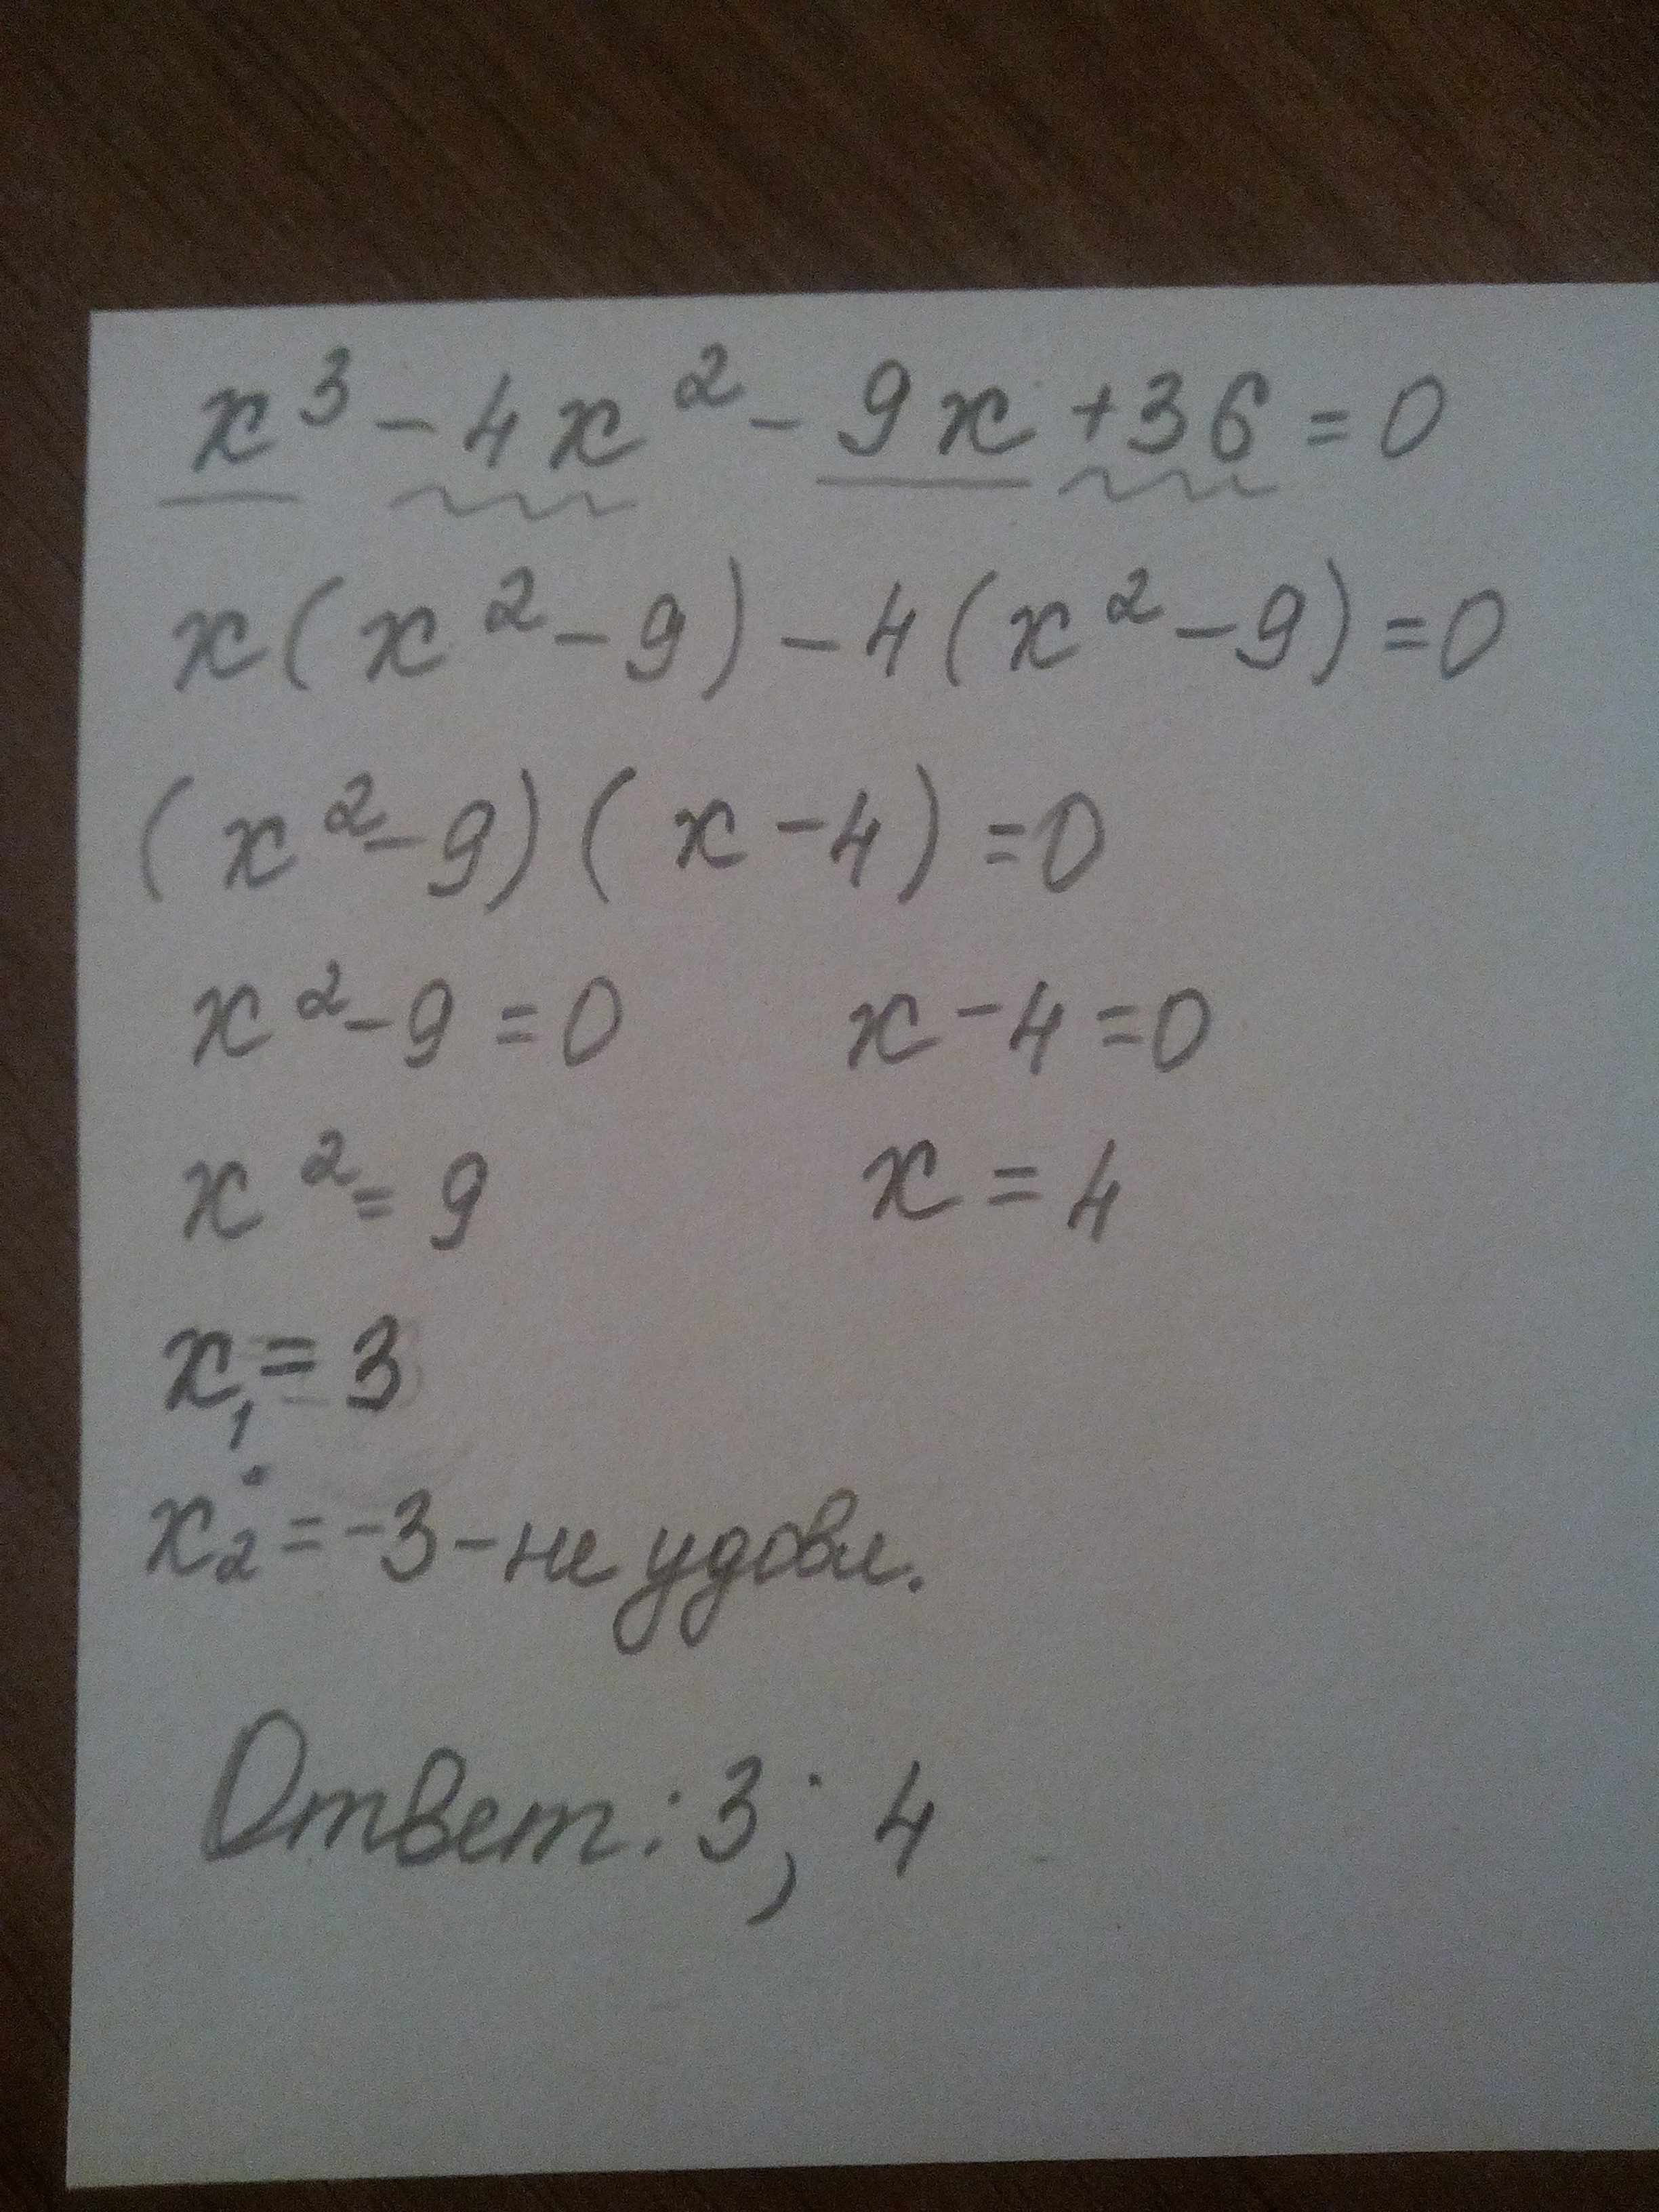 x³ - 4x² - 9x + 36 = 0
x(x² - 9) - 4(x² - 9) = 0
(x² - 9)(x - 4) = 0
x² - 9 = 0 x - 4 = 0
x² = 9 x = 4
x₁ = 3
x₂ = -3 - не удовл.
Ответ: 3; 4